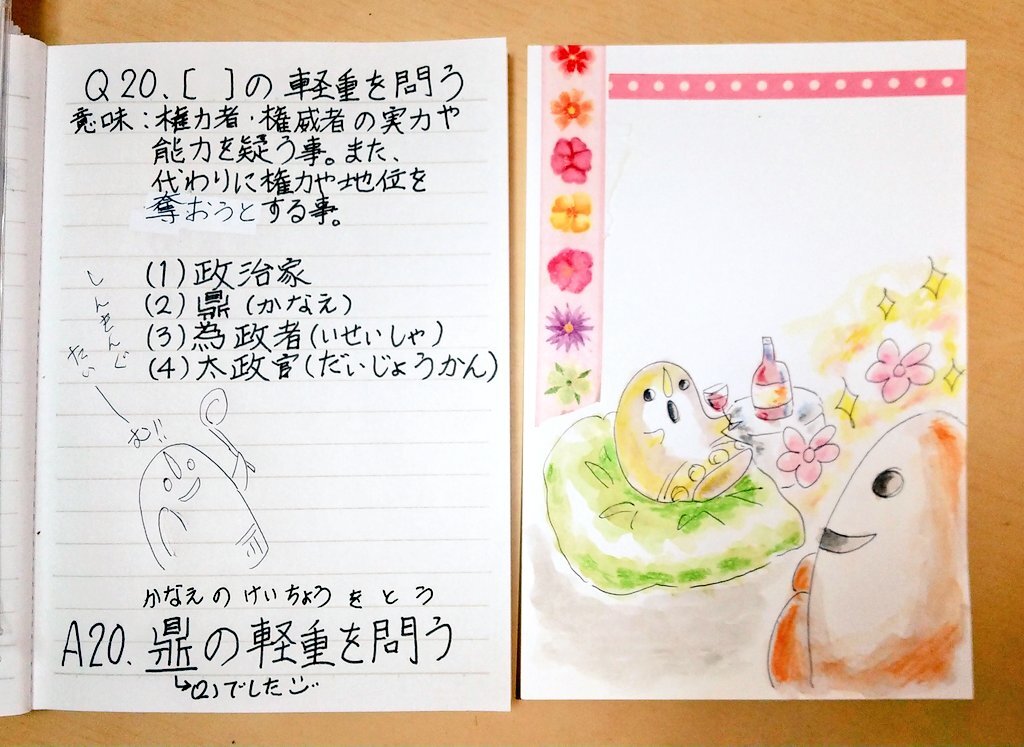 Q20.[ ]の軽重を問う
意味:権力者・権威者の実力や
能力を疑う事。また、
代わりに権力や地位を
奪おうとする事。
(1)政治家
(2)鼎(かなえ)
(3)為政者(いせいしゃ)
(4)太政官(だいじょうかん)
む!!
かなえのけいちょうをとう
A20.鼎の軽重を問う
↳(2)でした